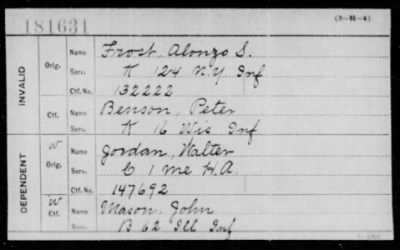 181631
(3-H-4)
INVALID
Orig.
Name Frost, Alonzo S.
Serv. K 124 N.Y. Inf
Ctf. No. 132222
Ctf.
Name Benson, Peter
Serv. K 16 Wis Inf
DEPENDENT
W
Orig.
Name Jordan, Walter
Serv. C 1 Me H.A.
Ctf. No. 147692
W
Ctf.
Name Mason, John
Serv. B 62 Ill Inf